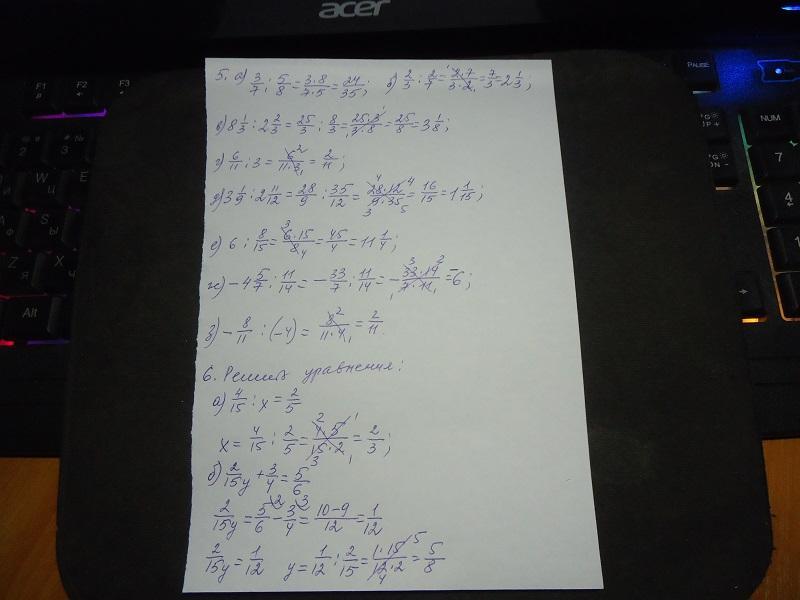 acer
5. а) 3/7 : 5/8 = 3·8/7·5 = 24/35; б) 2/3 : 2/7 = 2·7/3·2 = 7/3 = 2 1/3;
в) 8 1/3 : 2 2/3 = 25/3 : 8/3 = 25·3/3·8 = 25/8 = 3 1/8;
г) 6/11 : 3 = 6/11·3 = 2/11;
д) 3 1/9 : 2 11/12 = 28/9 : 35/12 = 28·12/9·35 = 16/15 = 1 1/15;
е) 6 : 8/15 = 6·15/8 = 45/4 = 11 1/4;
ж) -4 5/7 : 11/14 = -33/7 : 11/14 = -33·14/7·11 = -6;
з) -8/11 : (-4) = 8/11·4 = 2/11.
6. Решить уравнения:
а) 4/15 : x = 2/5
x = 4/15 : 2/5 = 4·5/15·2 = 2/3;
б) 2/15 y + 3/4 = 5/6
2/15 y = 5/6 - 3/4 = 10-9/12 = 1/12
2/15 y = 1/12 y = 1/12 : 2/15 = 1·15/12·2 = 5/8
F1
F2
F3
Alt
PAUSE
NUM
7
4
1